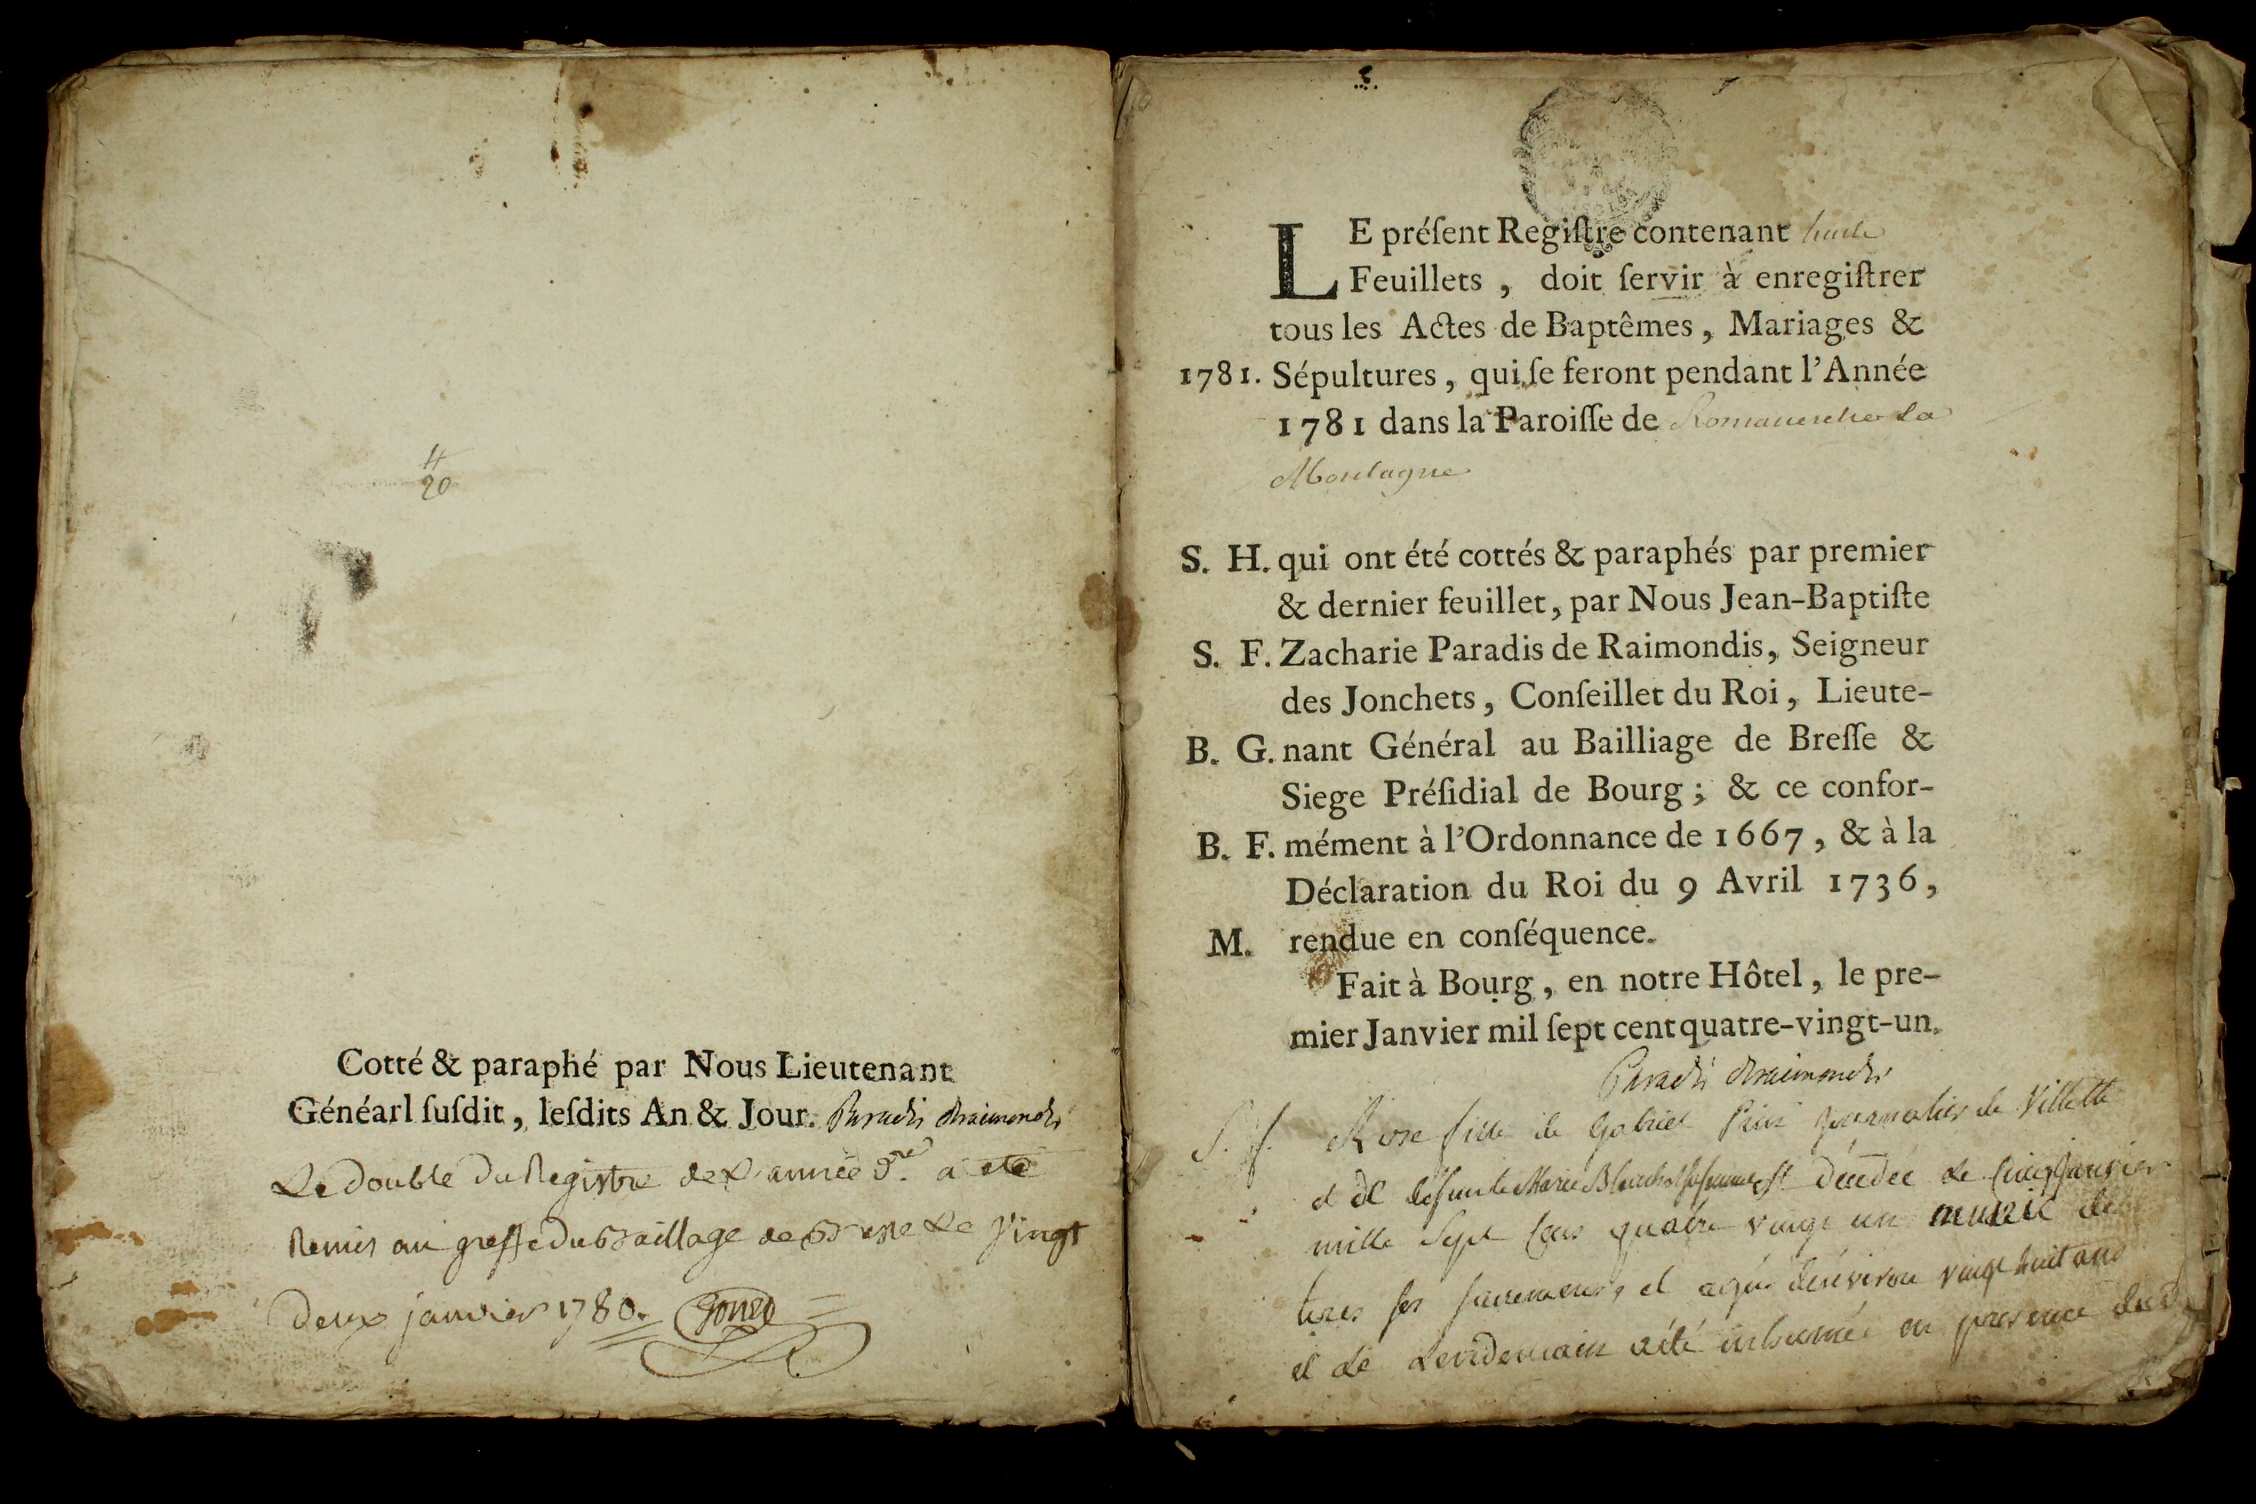 4
20
Cotté & paraphé par Nous Lieutenant
Généarl ſuſdit, leſdits An & Jour. Paradis deraimondis
Le double du Registre de l'année dre. a été
Remis au greffe du Baillage de Bresse Le Vingt
deux janvier 1780.
LE préſent Regiſtre contenant huit
Feuillets, doit ſervir à enregiſtrer
tous les Actes de Baptêmes, Mariages &
1781. Sépultures, qui ſe feront pendant l'Année
1781 dans la Paroiſſe de Romaneche La
Montagne
S. H. qui ont été cottés & paraphés par premier
& dernier feuillet, par Nous Jean-Baptiſte
S. F. Zacharie Paradis de Raimondis, Seigneur
des Jonchets, Conſeillet du Roi, Lieute-
B. G. nant Général au Bailliage de Breſſe &
Siege Préſidial de Bourg; & ce confor-
B. F. mément à l'Ordonnance de 1667, & à la
Déclaration du Roi du 9 Avril 1736,
M. rendue en conſéquence.
Fait à Bourg, en notre Hôtel, le pre-
mier Janvier mil ſept cent quatre-vingt-un.
Paradis deraimondis
S. f. fille de Gabriel de Villette
et de defunte Marie décédée le cinq janvier
mille Sept Cens quatre vingt un munie de
ses sacremens et agée denviron vingt huit ans
et Le Lendemain a été inhumée en presence